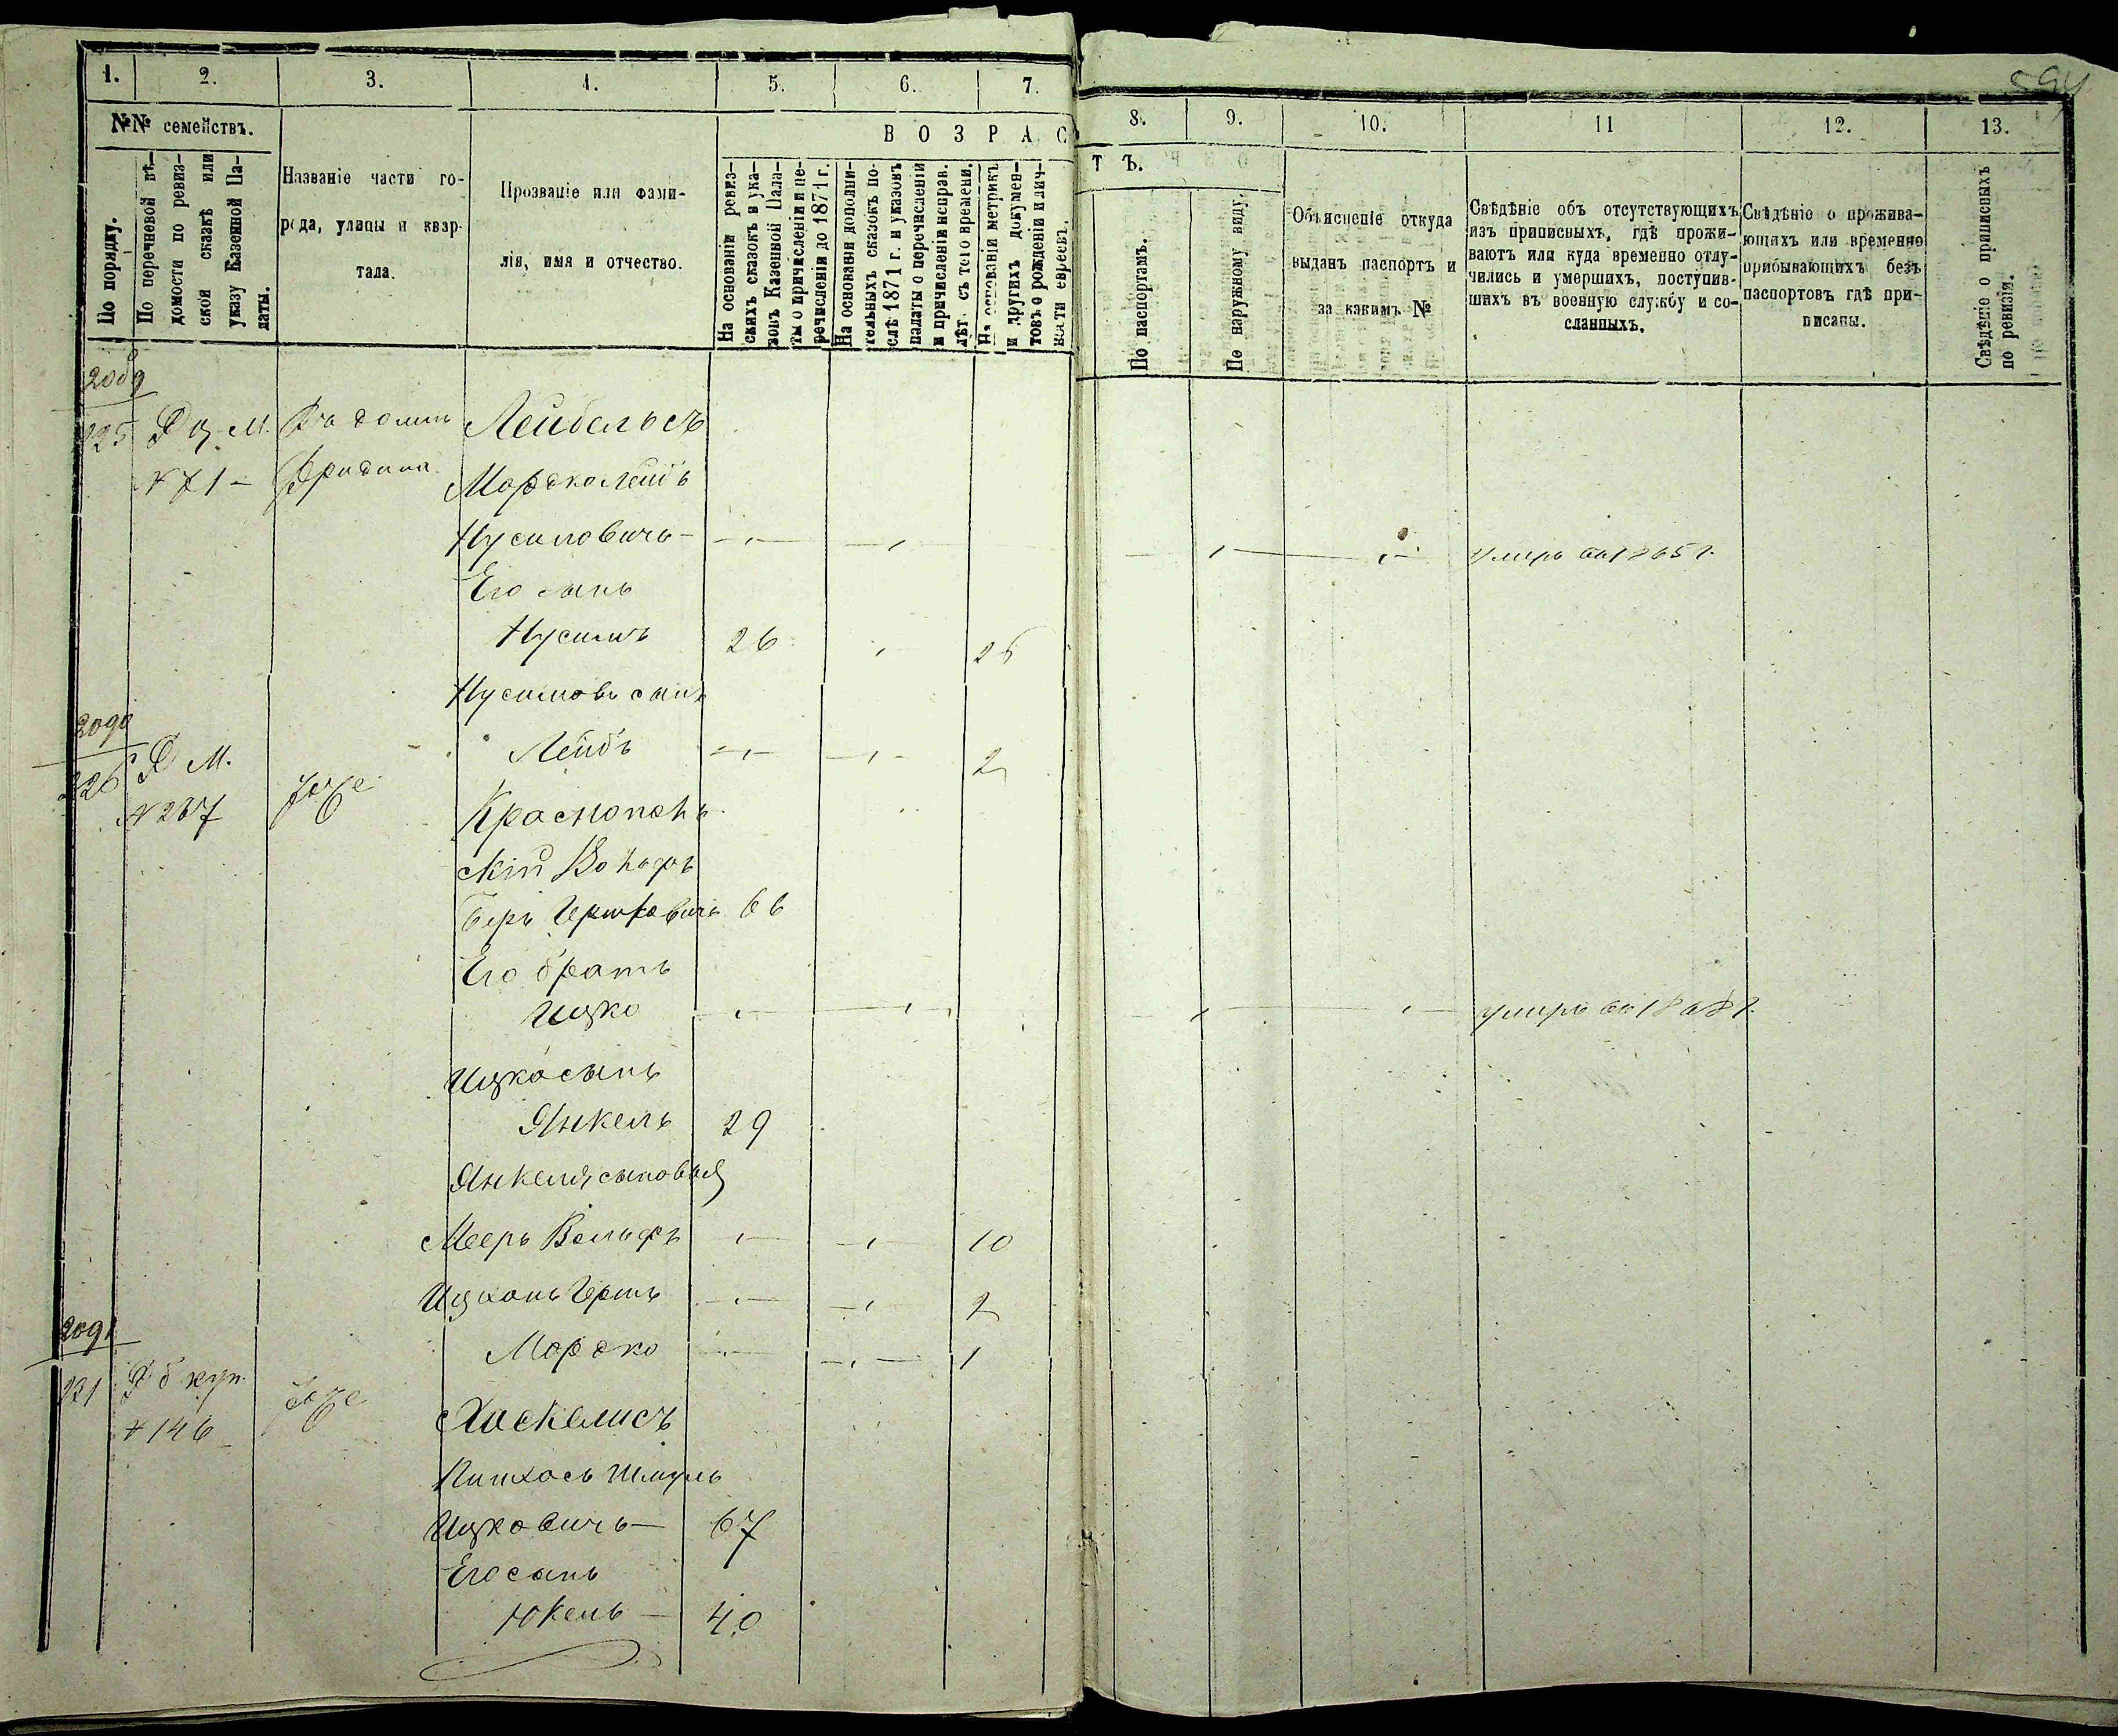 594
1. 2. 3. 4. 5. 6. 7. 8. 9. 10. 11 12. 13.
№№ семействъ.
По порядку.
По перечневой вѣ-
домости по ревиз-
ской сказкѣ или
указу Казенной Па-
латы.
Названіе части го-
рода, улицы и квар-
тала.
Прозваніе или фами-
лія, имя и отчество.
ВОЗРАСТЪ.
На основаніи ревиз-
скихъ сказокъ и ука-
зовъ Казенной Пала-
ты о причисленіи и пе-
речисленіи до 1871 г.
На основаніи дополни-
тельныхъ сказокъ по-
слѣ 1871 г. и указовъ
палаты о перечисленіи
и причисленіи исправ.
лѣт. съ того времени.
На основаніи метрикъ
и другихъ докумен-
товъ о рожденіи и лич-
ности евреевъ.
По паспортамъ.
По наружному виду.
Объясненіе откуда
выданъ паспортъ и
за какимъ №
Свѣдѣніе объ отсутствующихъ
изъ приписныхъ, гдѣ прожи-
ваютъ или куда временно отлу-
чились и умершихъ, поступив-
шихъ въ военную службу и со-
сланныхъ.
Свѣдѣніе о прожива-
ющихъ или временно
прибывающихъ безъ
паспортовъ гдѣ при-
писаны.
Свѣдѣніе о приписныхъ
по ревизіи.
2089
225 М. Въ домѣ Лейбельсъ
№ 71 - Фридина Мордколейбъ
Нусимовичъ - умеръ въ 1865 г.
Его сынъ
Нусимъ 26 26
Нусимовъ сынъ
Лейбъ 2
2090
226 М.
№ 287 тоже Краснополь-
скій Вольфъ
Беръ Гершковичъ 66
Его братъ
Ицко умеръ въ 1868 г.
Ицко сынъ
Янкель 29
Янкеля сыновья
Мееръ Вольфъ 10
Ицхокъ Гершъ 2
Мордко 1
2091
б куп.
№ 146 тоже Хаскелисъ
Пинхосъ Шмуль
Ицковичъ - 67
Его сынъ
Юкель - 40